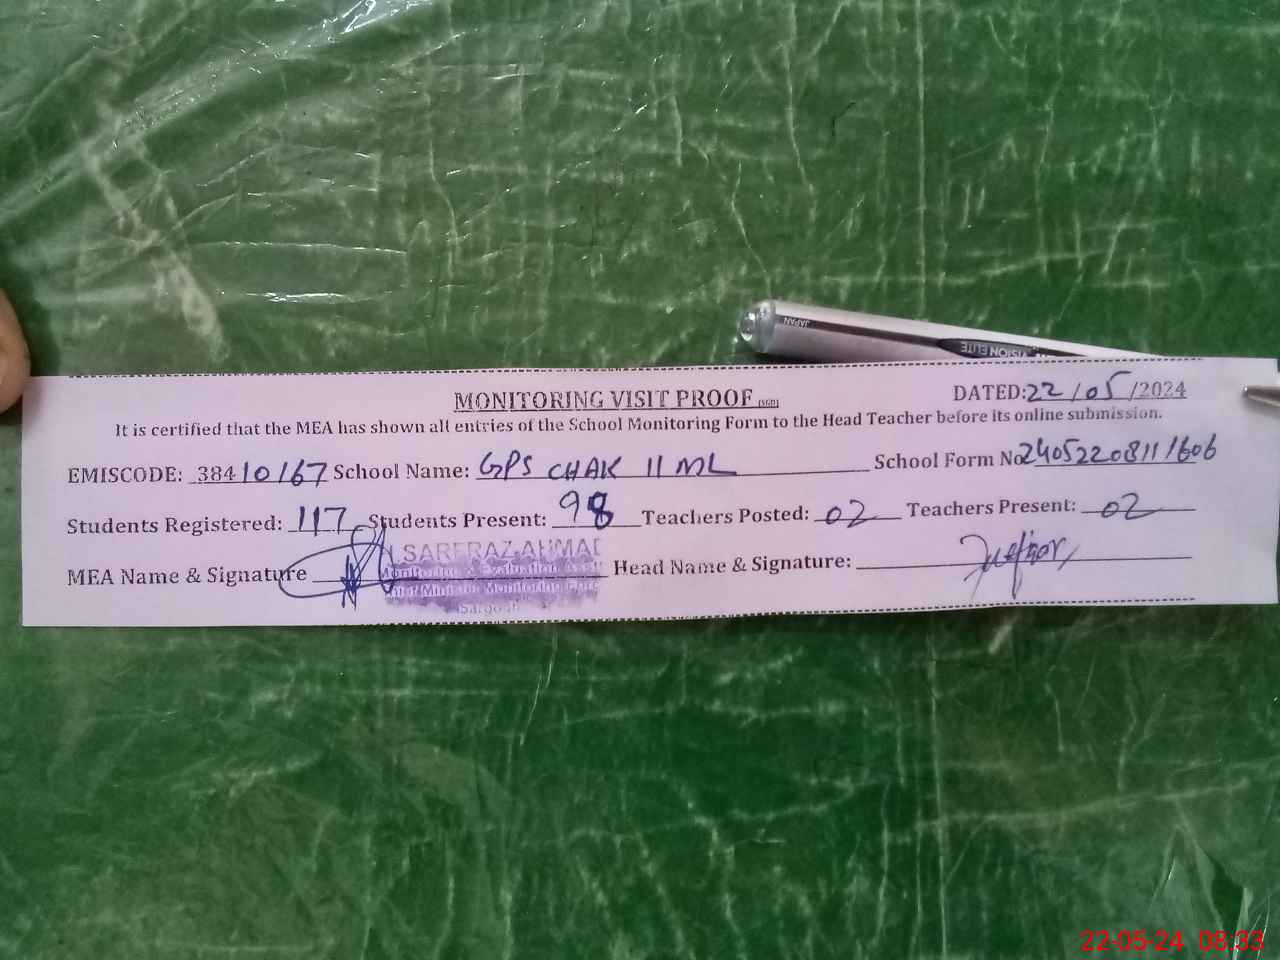 JAPAN
VISION ELITE
MONITORING VISIT PROOF (SGD)
DATED: 22/05/2024
It is certified that the MEA has shown all entries of the School Monitoring Form to the Head Teacher before its online submission.
EMISCODE: 38410167 School Name: GPS CHAK 11 ML School Form No 24052208111606
Students Registered: 117 Students Present: 98 Teachers Posted: 02 Teachers Present: 02
SARFRAZ AHMAD
MEA Name & Signature Head Name & Signature:
Monitoring & Evaluation Assistt
Chief Minister Monitoring Force
Sargodha
22-05-24 08:33